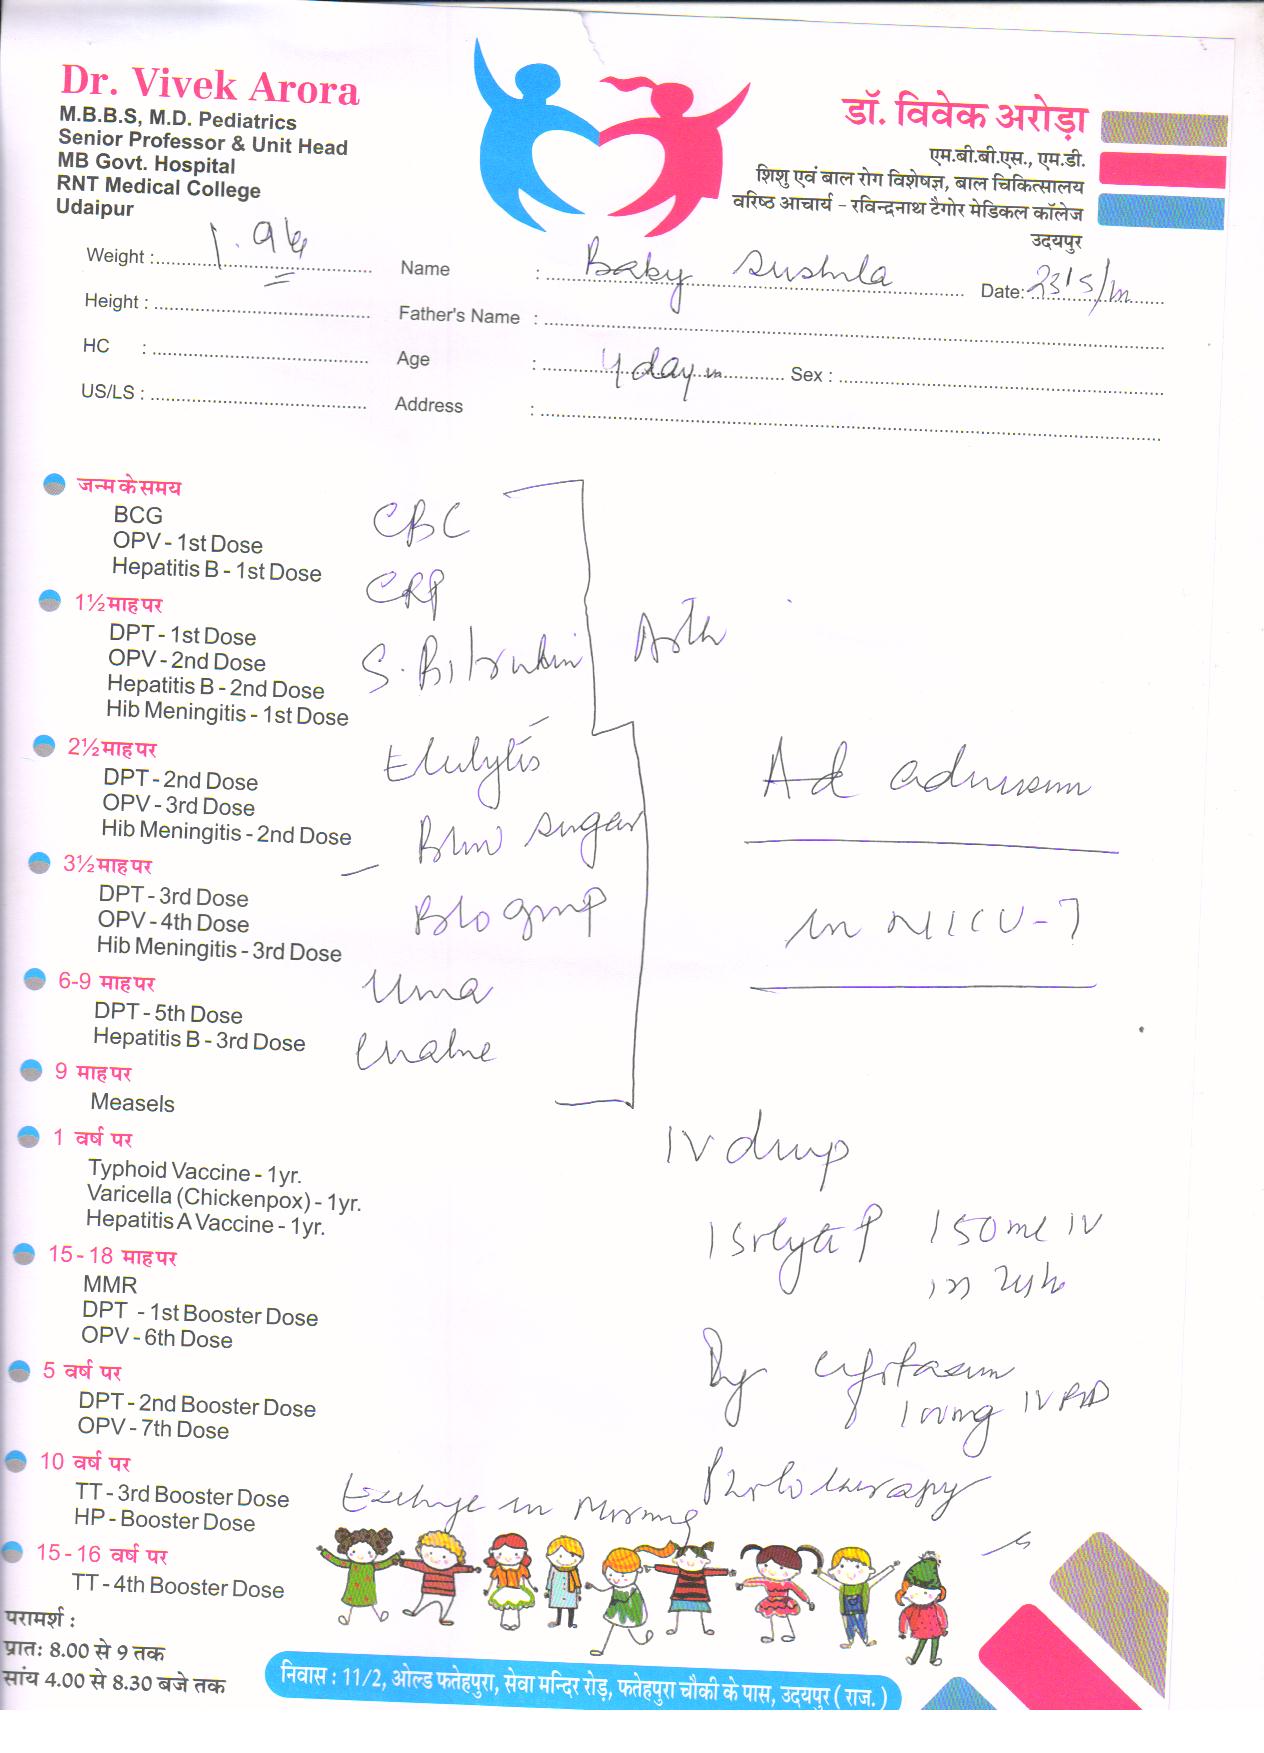 Dr. Vivek Arora
M.B.B.S, M.D. Pediatrics
Senior Professor & Unit Head
MB Govt. Hospital
RNT Medical College
Udaipur
डॉ. विवेक अरोड़ा
एम.बी.बी.एस., एम.डी.
शिशु एवं बाल रोग विशेषज्ञ, बाल चिकित्सालय
वरिष्ठ आचार्य - रविन्द्रनाथ टैगोर मेडिकल कॉलेज
उदयपुर
Weight : 1.9
Name : Baby Sushila
Date:
Height :
Father's Name :
HC :
Age : 4 day
Sex :
US/LS :
Address :
जन्म के समय
BCG
OPV - 1st Dose
Hepatitis B - 1st Dose
1½ माह पर
DPT - 1st Dose
OPV - 2nd Dose
Hepatitis B - 2nd Dose
Hib Meningitis - 1st Dose
2½ माह पर
DPT - 2nd Dose
OPV - 3rd Dose
Hib Meningitis - 2nd Dose
3½ माह पर
DPT - 3rd Dose
OPV - 4th Dose
Hib Meningitis - 3rd Dose
6-9 माह पर
DPT - 5th Dose
Hepatitis B - 3rd Dose
9 माह पर
Measels
1 वर्ष पर
Typhoid Vaccine - 1yr.
Varicella (Chickenpox) - 1yr.
Hepatitis A Vaccine - 1yr.
15 - 18 माह पर
MMR
DPT - 1st Booster Dose
OPV - 6th Dose
5 वर्ष पर
DPT - 2nd Booster Dose
OPV - 7th Dose
10 वर्ष पर
TT - 3rd Booster Dose
HP - Booster Dose
15 - 16 वर्ष पर
TT - 4th Booster Dose
CBC
CRP
S. Bilirubin
sugar
Ad admission
in NICU-7
IV drip
Isolyte P 150 ml IV
in 24h
100mg IV
Phototherapy
in Morning
परामर्श :
प्रातः 8.00 से 9 तक
सांय 4.00 से 8.30 बजे तक
निवास : 11/2, ओल्ड फतेहपुरा, सेवा मन्दिर रोड़, फतेहपुरा चौकी के पास, उदयपुर ( राज. )